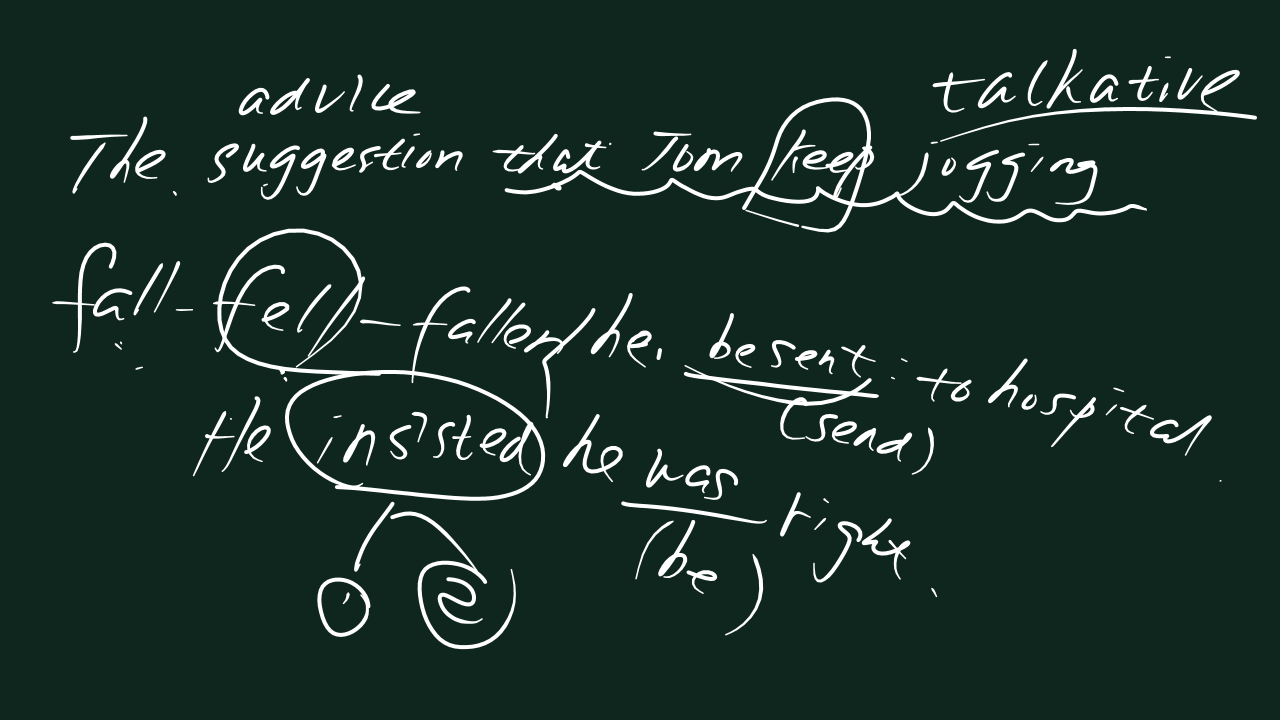 advice talkative
The suggestion that Tom keep jogging
fall - fell - fallen / he be sent to hospital
(send)
He insisted he was right
(be)
① ②